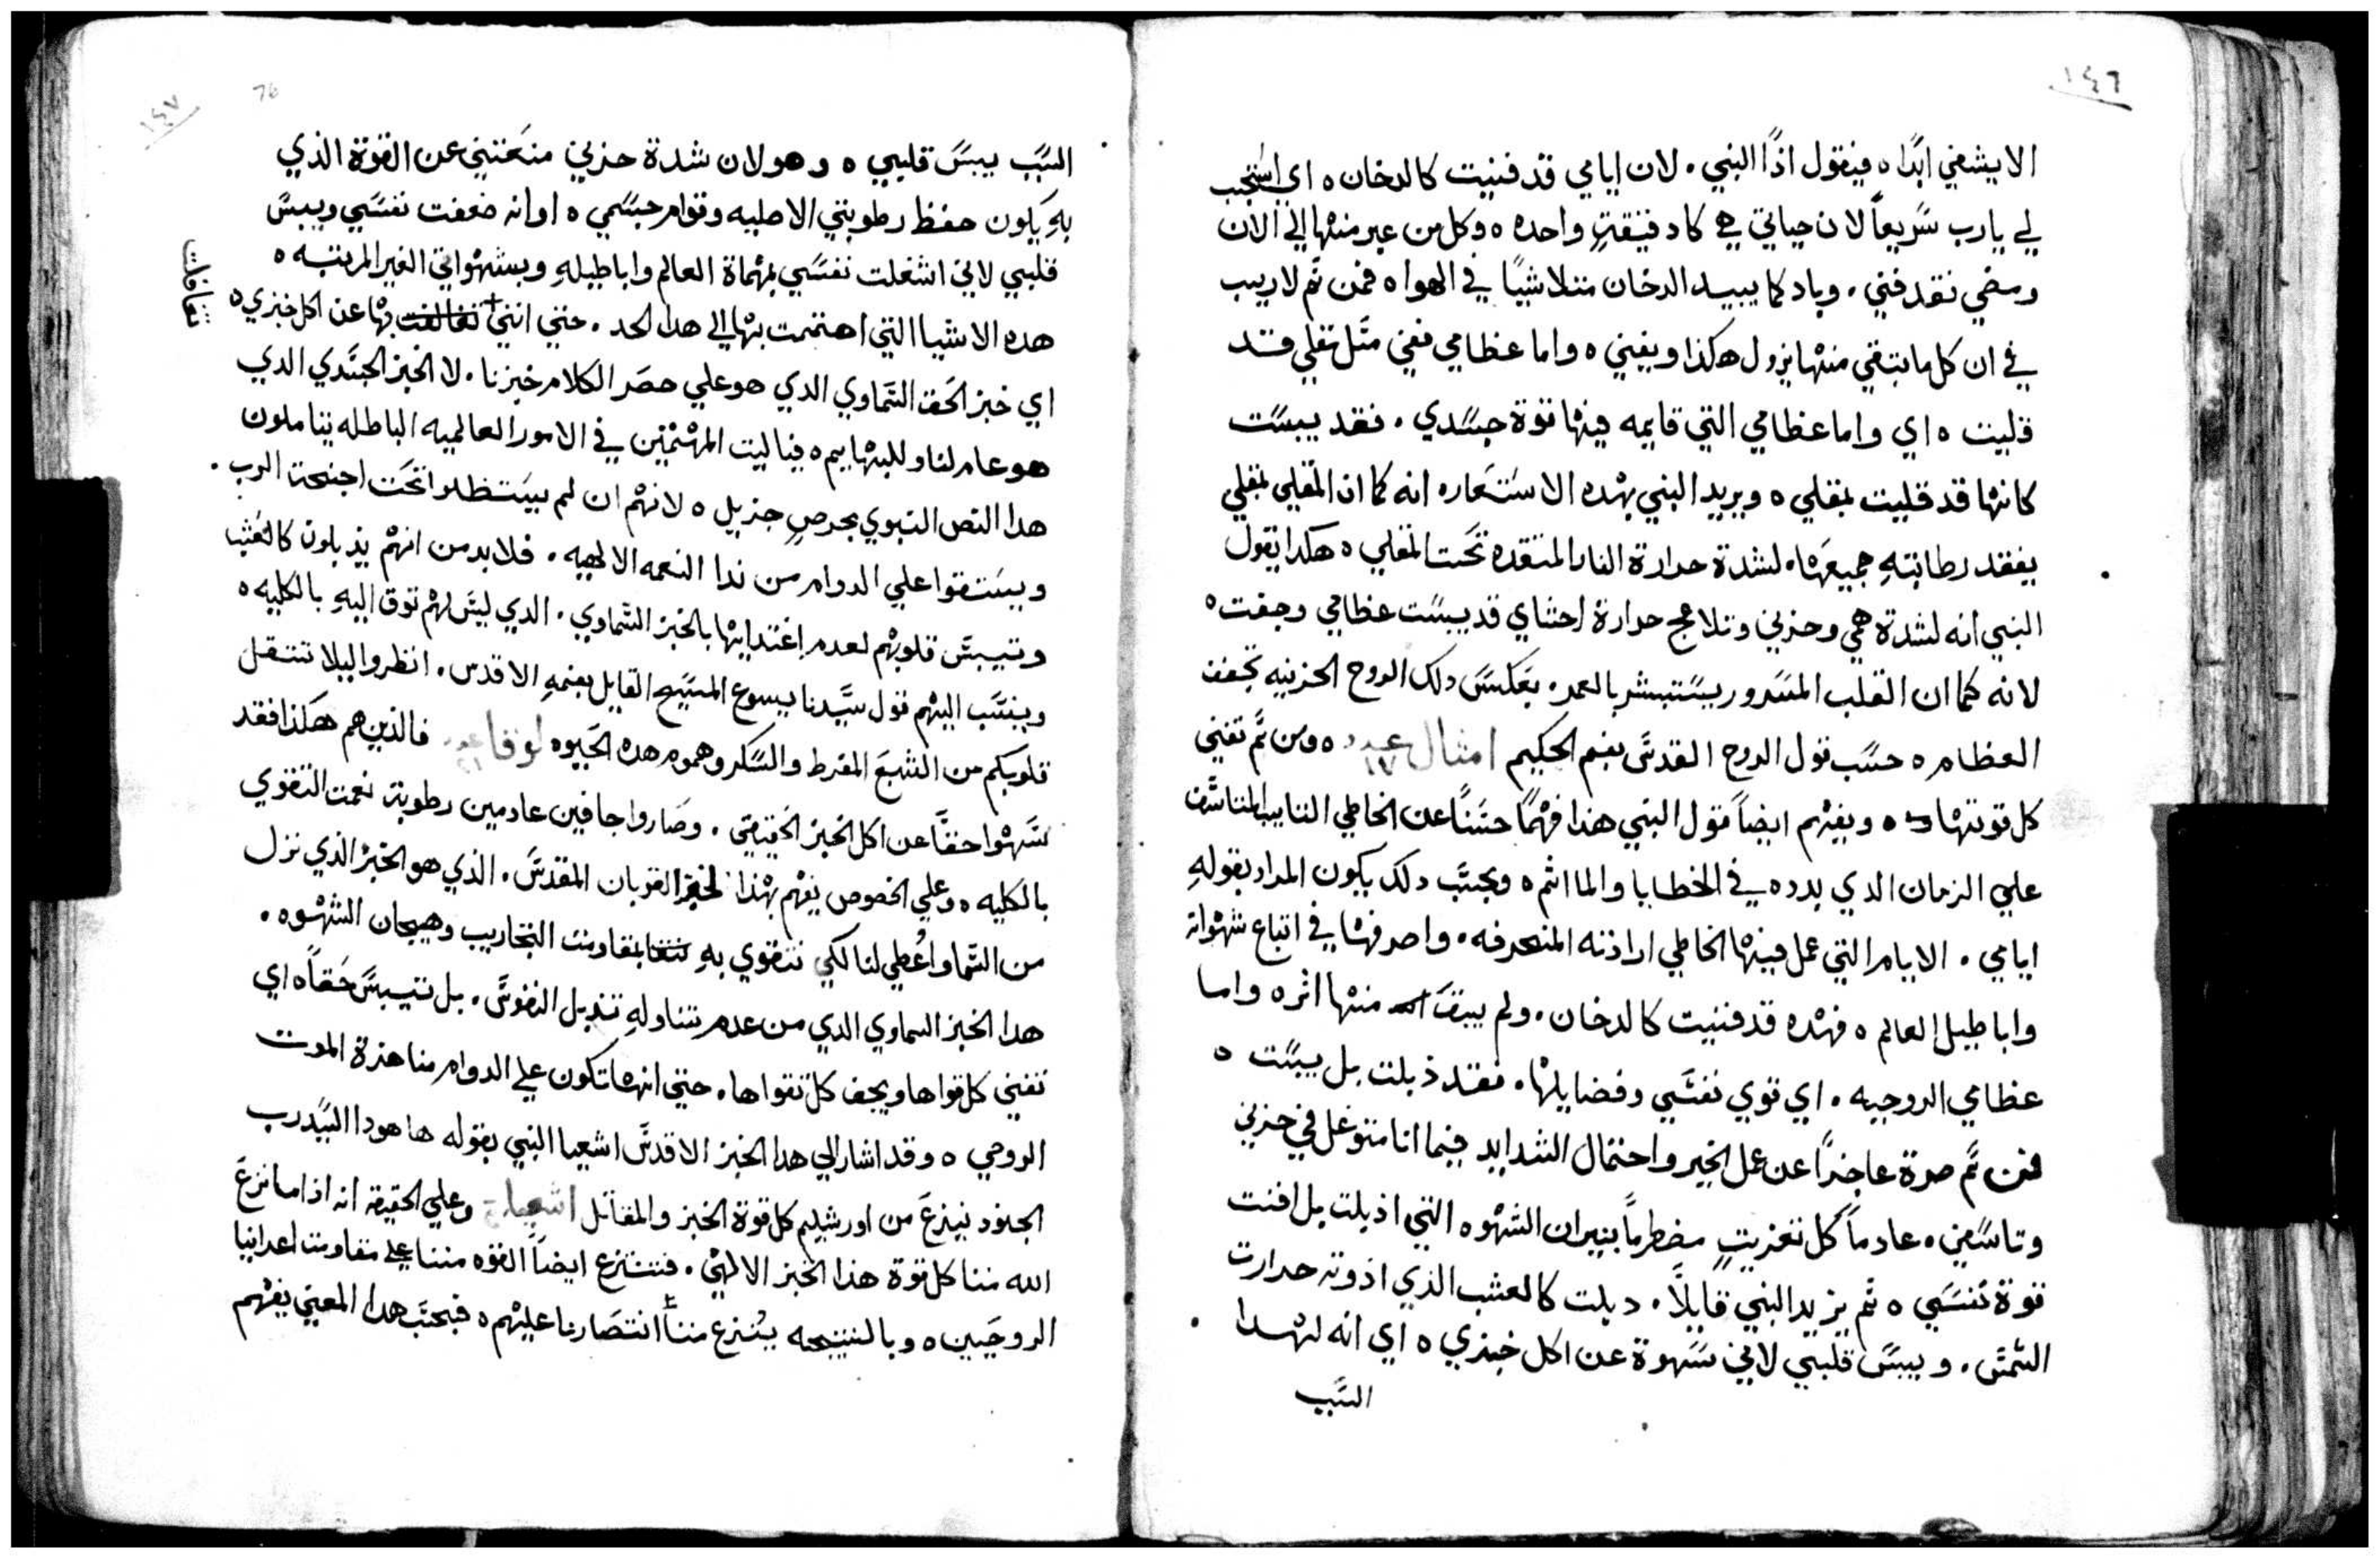 ١٤٦
الا يشفي ابدًا ه فيقول اذًا النبي . لان ايامي قد فنيت كالدخان ه اي استجب
لي يا رب سريعًا لان حياتي هي كادقيقةٍ واحده ه وكل من عبر منها الي الان
ومضي نقد فني . وباد كما يبيد الدخان متلاشيًا في الهوا ه فمن ثم لا ريب
في ان كل ما تبقي منها يزول هكذا ويفني ه واما عظامي ففي مثل مقلي قد
قليت ه اي واما عظامي التي قايمه فيها قوة جسدي . فقد يبست
كانها قد قليت بمقلي ه ويريد النبي بهده الاستعاره انه كما ان المقلي بمقلي
يفقد رطابته جميعها . لشدة حرارة النار المتقده تحت المقلي ه هكدا يقول
النبي انه لشدة همي وحزني وتلاعج حرارة احشاي قد يبست عظامي وجفت ه
لانه كما ان القلب المسرور يستبشر بالعمر . بعكس دلك الروح الحزينه تجفف
العظام ه حسب قول الروح القدس بفم الحكيم امثال عدد ١٧ ه ومن ثم تفني
كل قوتها ه ويفهم ايضًا قول النبي هذا فهمًا حسنًا عن الخاطي التايب المتاسف
علي الزمان الدي بدده في الخطايا والمااثم ه وبحسب دلك يكون المراد بقوله
ايامي . الايام التي عمل فيها الخاطي ارادته المنحرفه . واصرفها في اتباع شهواته
واباطيل العالم ه فهده قد فنيت كالدخان . ولم يبقَ منها اثره واما
عظامي الروحيه . اي قوي نفسي وفضايلها . فقد ذبلت بل يبست ه
فمن ثم صرة عاجزًا عن عمل الخير واحتمال الشدايد فيما انا متوغل في حزني
وتاسفي . عادمًا كل تعزيتٍ مضطرمًا بنيران الشهوه التي اذبلت بل افنت
قوة نفسي ه ثم يزيد النبي قايلًا . دبلت كالعشب الذي اذوته حرارت
الشمس . ويبس قلبي لاني سهوة عن اكل خبزي ه اي انه لهدا
السبب
١٤٧
76
السبب يبس قلبي ه وهو لان شدة حزني منعتني عن القوة الذي
به يكون حفظ رطوبتي الاصليه وقوام جسمي ه او انه ضعفت نفسي ويبس
قلبي لاني اشغلت نفسي بمهماة العالم واباطيله وبشهواتي الغير المرتبه ه
هده الاشيا التي اهتممت بها الي هدا الحد . حتي انني تغافلت بها عن اكل خبزي ه
تغافلت
اي خبز الحق السماوي الدي هو علي حصر الكلام خبزنا . لا الخبز الجسدي الدي
هو عام لنا وللبهايم ه فيا ليت المهتمين في الامور العالميه الباطله يتاملون
هدا النص النبوي بحرصٍ جزيل ه لانهم ان لم يستظلوا تحت اجنحة الرب .
ويستقوا علي الدوام من ندا النعمه الالهيه . فلا بد من انهم يذبلون كالعشب
وتيبس قلوبهم لعدم اغتدايها بالخبز السماوي . الدي ليس لهم توق اليه بالكليه ه
وينسب اليهم قول سيدنا يسوع المسيح القايل بفمه الاقدس . انظروا ليلا تتثقل
قلوبكم من الشبع المفرط والسكر وهموم هده الحيوه لوقا ٢١ فالذين هم هكذا فقد
سهوا حقًا عن اكل الخبز الحقيقي . وصاروا جافين عادمين رطوبة نعمت التقوي
بالكليه ه وعلي الخصوص يفهم بهذا الخبز القربان المقدس . الذي هو الخبز الذي نزل
من السما واُعطي لنا لكي نتقوي به لمقاومت التجاريب وهيجان الشهوه .
هدا الخبز السماوي الدي من عدم تناوله تذبل النفوس . بل تتيبس حقًا ه اي
تفني كل قواها ويجف كل تقواها . حتي انها تكون علي الدوام مناهزة الموت
الروحي ه وقد اشار الي هدا الخبز الاقدس اشعيا النبي بقوله ها هودا السيد رب
الجنود ينزع من اورشليم كل قوة الخبز والمقاتل اشعيا ٣ وعلي الحقيقه انه اذا ما نزع
الله مننا كل قوة هذا الخبز الالهي . فتنتزع ايضًا القوه مننا علي مقاومت اعداينا
الروحيين ه وبالنتيجه يُنزع مننا انتصارنا عليهم ه فبحسب هدا المعني يفهم